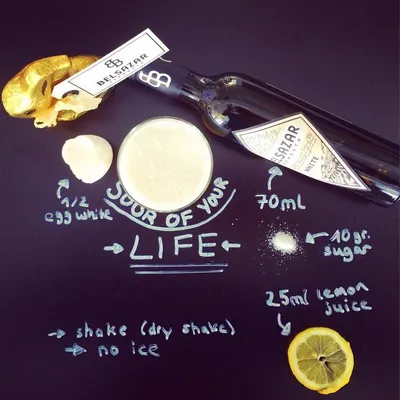 BELSAZAR
BELSAZAR
WHITE
1/2
egg white
SOUR OF YOUR
LIFE
70ml
10gr.
sugar
25ml lemon
juice
shake (dry shake)
no ice